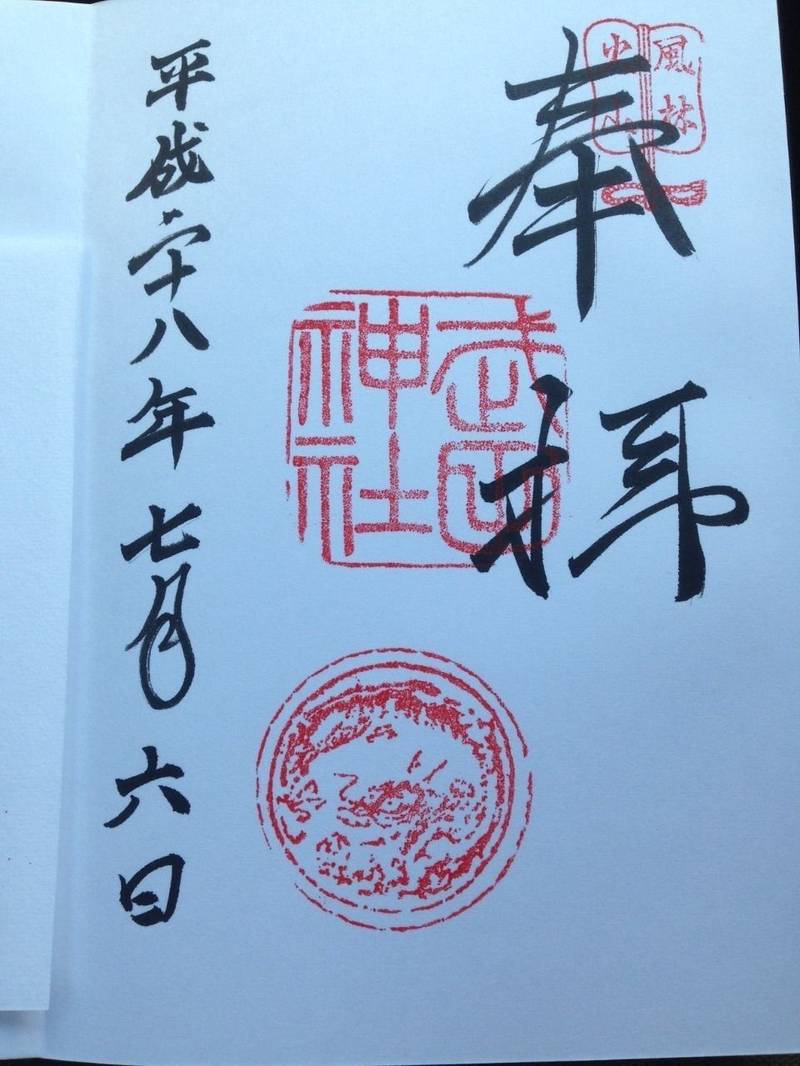 風林
火山
奉拝
武田
神社
平成二十八年七月六日